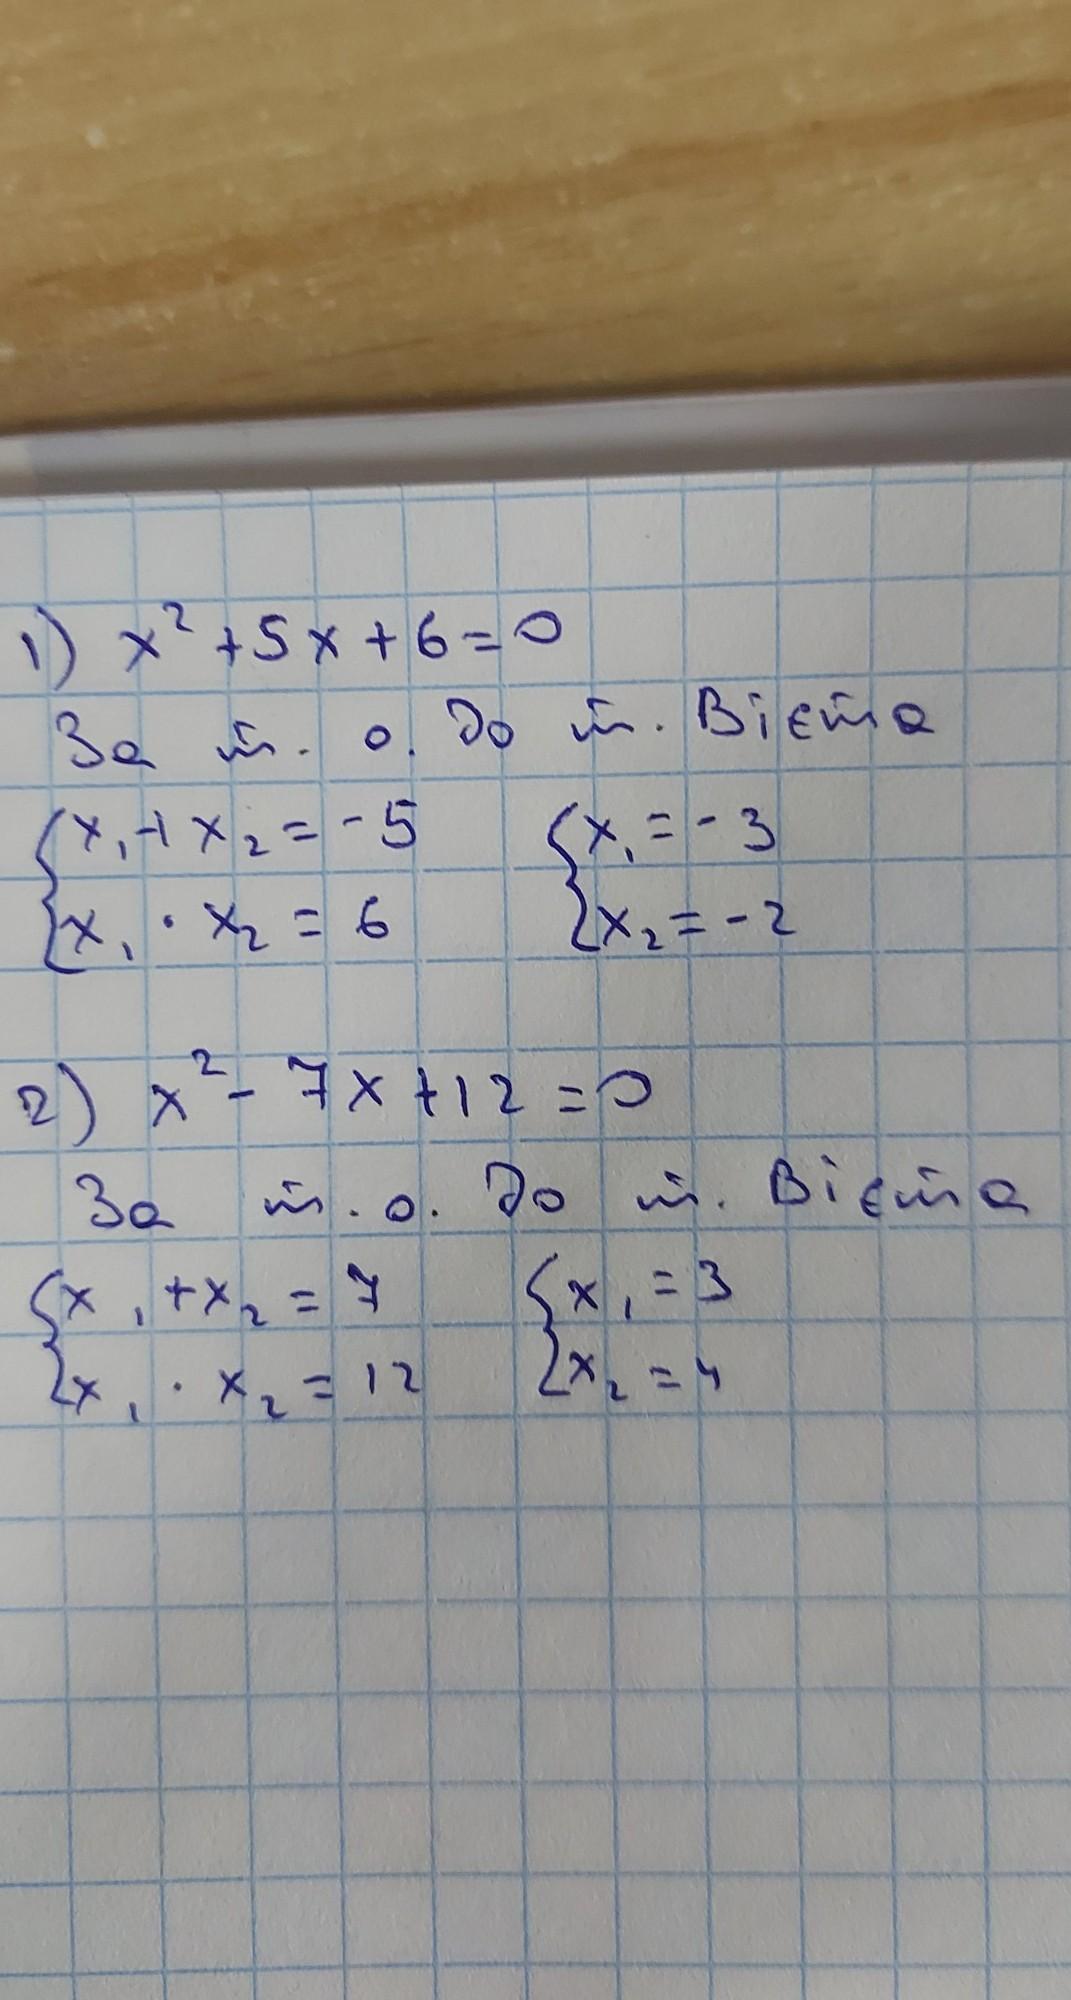 1) x² + 5x + 6 = 0
За т. о. до т. Вієта
{ x₁ + x₂ = -5 { x₁ = -3
{ x₁ · x₂ = 6 { x₂ = -2
2) x² - 7x + 12 = 0
За т. о. до т. Вієта
{ x₁ + x₂ = 7 { x₁ = 3
{ x₁ · x₂ = 12 { x₂ = 4